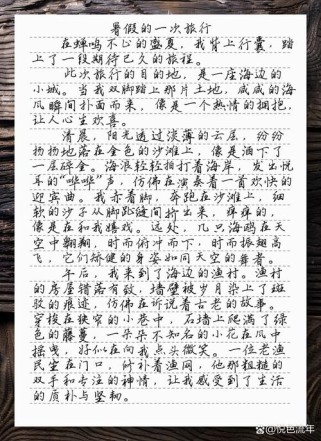 暑假的一次旅行
在蝉鸣不心的盛夏，我背上行囊，踏
上了一段期待已久的旅程。
此次旅行的目的地，是一座海边的
小城。当我双脚踏上那片土地，咸咸的海
风瞬间扑面而来，像是一个热情的拥抱，
让人心生欢喜。
清晨，阳光透过淡薄的云层，纷纷
扬扬地落在金色的沙滩上，像是洒下了
一层碎金。海浪轻轻拍打着海岸，发出悦
耳的“哗哗”声，仿佛在演奏着一首欢快的
迎宾曲。我赤着脚，奔跑在沙滩上，细
软的沙子从脚趾缝间挤出来，痒痒的，
像是在和我嬉戏。远处，几只海鸥在天
空中翱翔，时而俯冲而下，时而振翅高
飞，它们矫健的身姿如同天空的舞者。
午后，我来到了海边的渔村。渔村
的房屋错落有致，墙壁被岁月染上了斑
驳的痕迹，仿佛在诉说着古老的故事。
穿梭在狭窄的小巷中，石墙上爬满了绿
色的藤蔓，一朵朵不知名的小花在风中
摇曳，好似在向我点头微笑。一位老渔
民坐在门口，修补着渔网，他那粗糙的
双手和专注的神情，让我感受到了生活
的质朴与坚韧。
@悦色流年